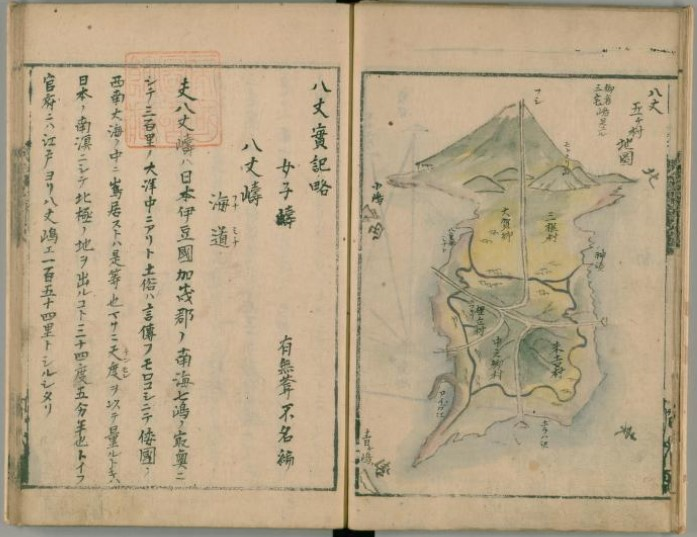 八丈
五ヶ村
地圖
三根村
大賀郷
樫立村
中之郷村
末吉村
神湊
小嶋
青嶋
八丈實記略
女子嶹
有無菴不名編
八丈嶹
海道
夫八丈嶹ハ日本伊豆國加茂郡ノ南海七嶋ノ最奥ニ
シテ三百里ノ大洋中ニアリト土俗ハ言傳フモロコシニテ倭國ノ
西南大海ノ中ニ嶌居ストハ是等也
日本ノ南溟ニシテ北極ノ地ヲ出ルコト三十四度五分半也トイフ
官府ニハ江戸ヨリ八丈嶋エ一百五十四里トシルシタリ